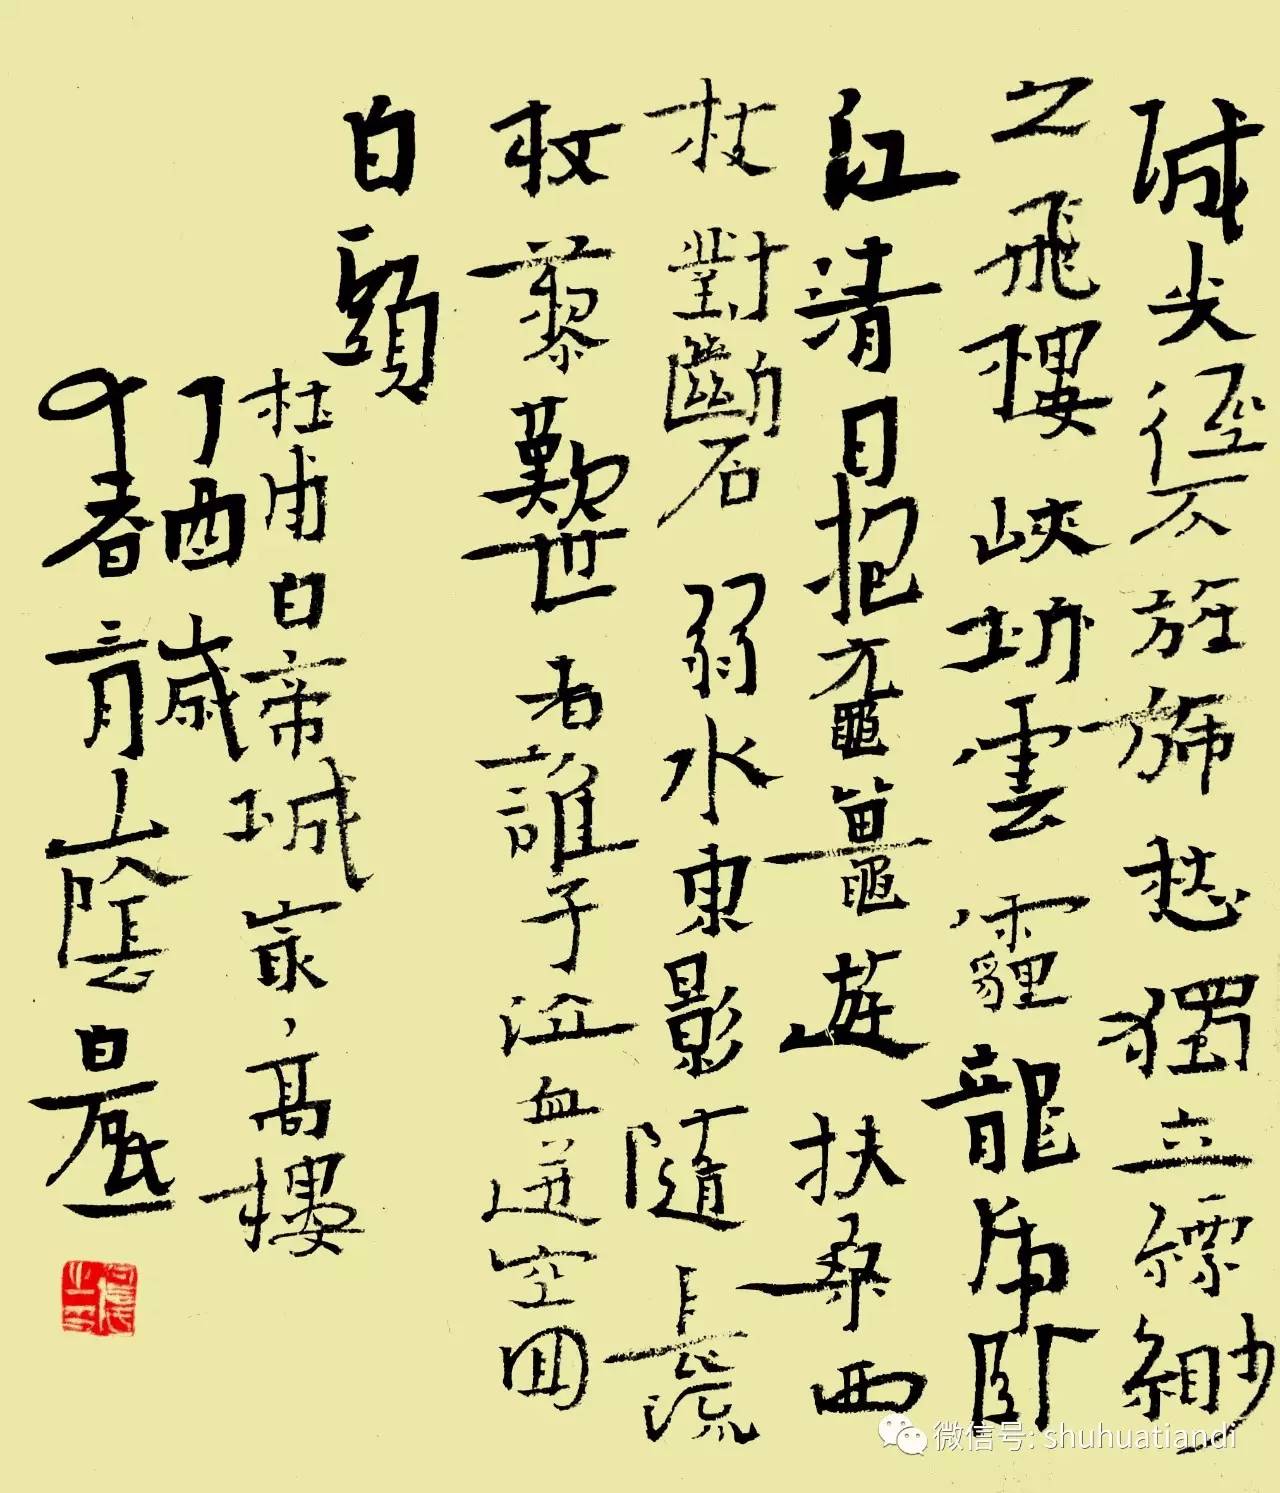 城尖徑仄旌旆愁獨立縹緲
之飛樓峽坼雲霾龍虎卧
江清日抱黿鼉遊扶桑西
枝對斷石弱水東影隨長流
杖藜歎世者誰子泣血迸空回
白頭
杜甫白帝城最高樓
丁酉歲
春青山陰
微信号: shuhuatiandi